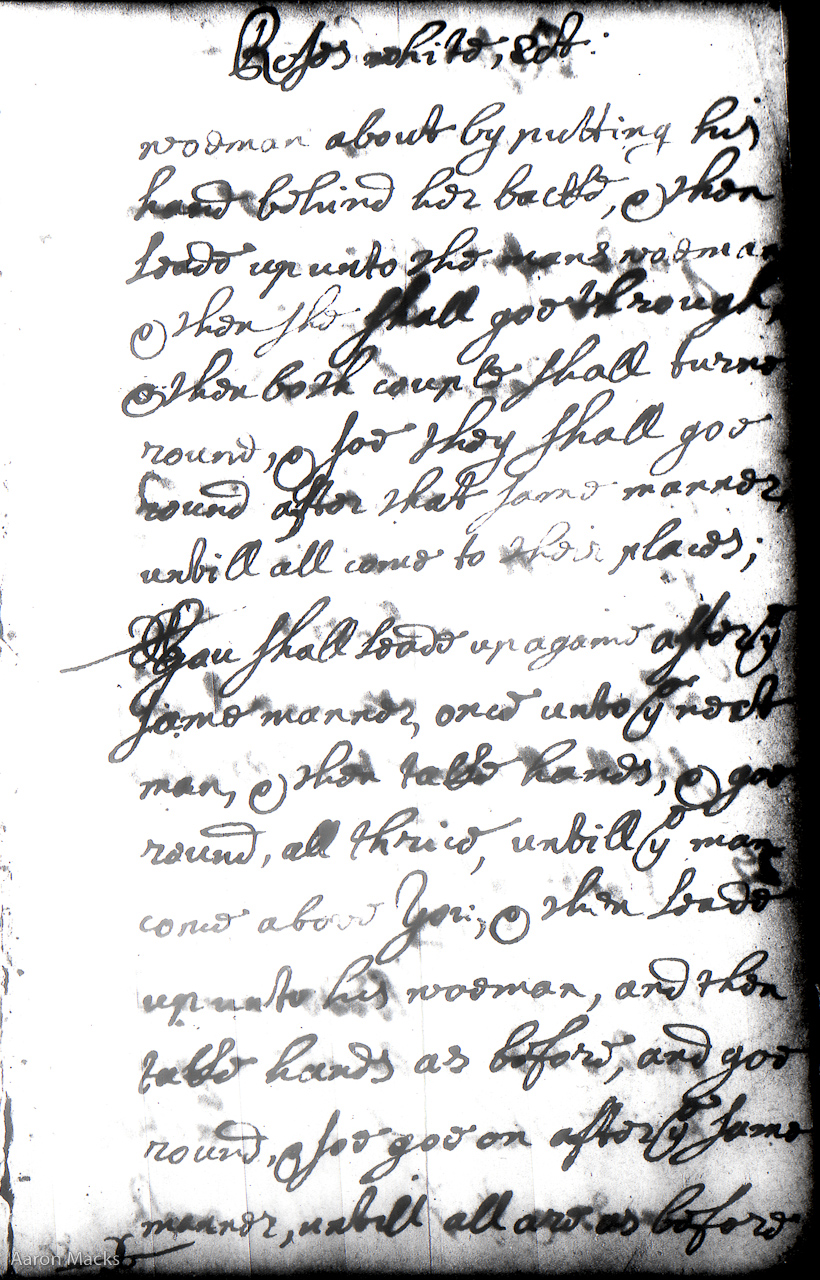 Roses white, &ct:
woeman about by putting his
hand behind her backe, & then
leade up unto the mans woeman
& then she shall goe through,
& then both couple shall turne
round, & soe they shall goe
round after that same manner,
untill all come to their places;
You shall leade up againe after yͤ
same manner, once unto yͤ next
man, & then takke hands, & goe
round, all thrice, untill yͤ man
come above You; & then leade
up unto his woeman, and then
takke hands as before, and goe
round, & soe goe on after yͤ same
manner, untill all are as before
Aaron Macks